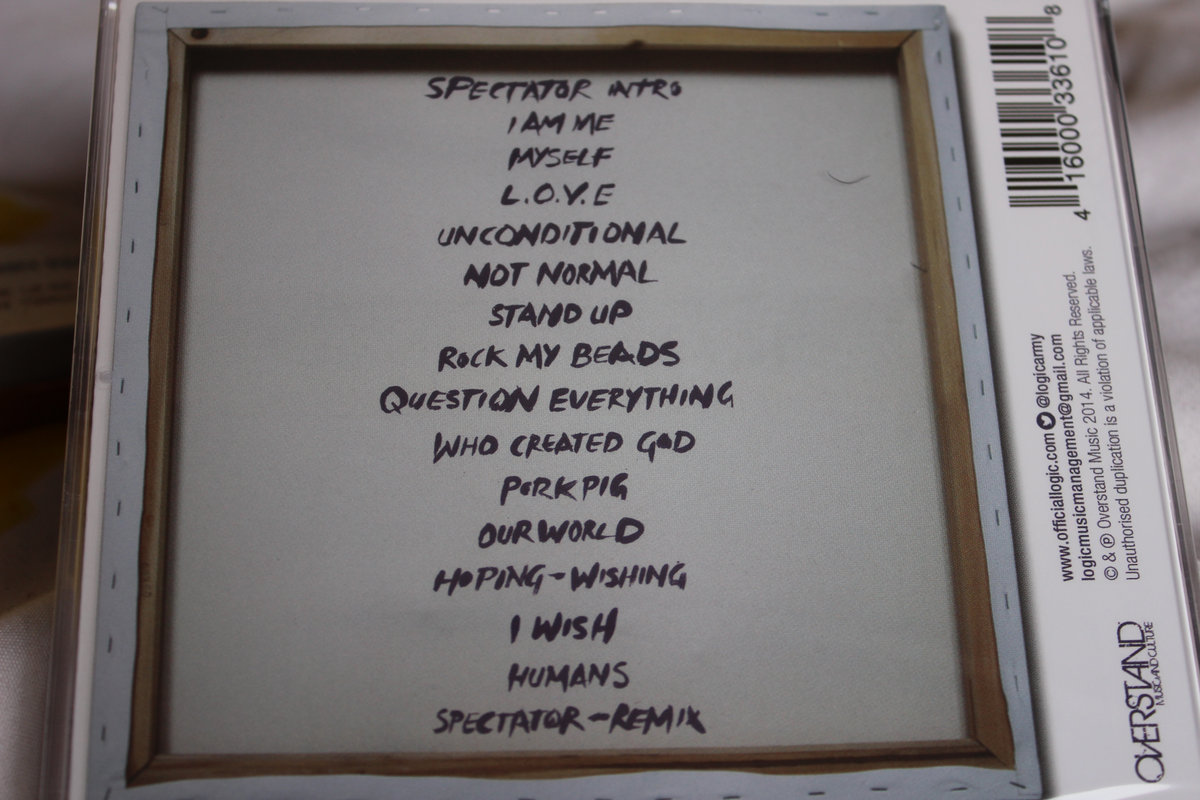 SPECTATOR INTRO
I AM ME
MYSELF
L.O.V.E
UNCONDITIONAL
NOT NORMAL
STAND UP
ROCK MY BEADS
QUESTION EVERYTHING
WHO CREATED GOD
PORK PIG
OUR WORLD
HOPING-WISHING
I WISH
HUMANS
SPECTATOR-REMIX
4 16000 33610 8
www.officiallogic.com @logicarmy
logicmusicmanagement@gmail.com
© & ℗ Overstand Music 2014. All Rights Reserved.
Unauthorised duplication is a violation of applicable laws.
OVERSTAND
MUSIC AND CULTURE